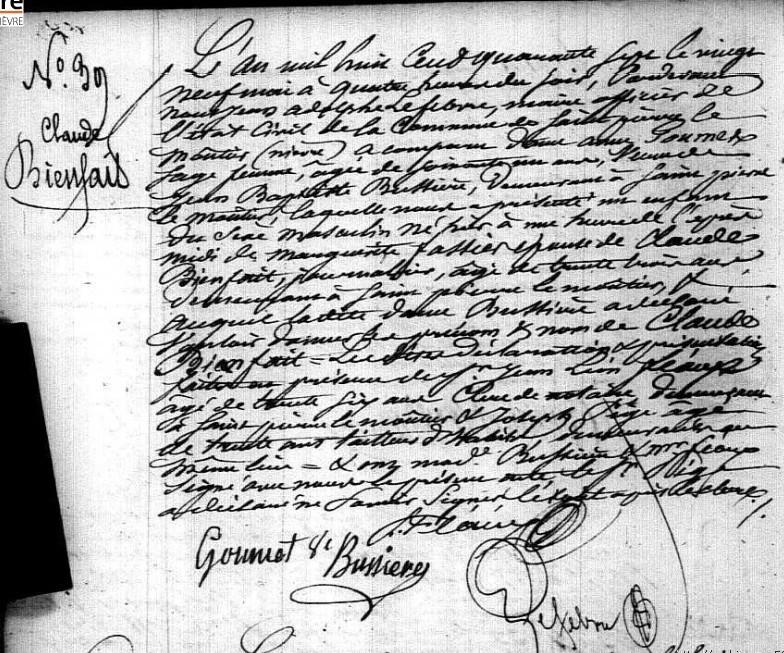 re
IÈVRE
N.º 39
Claude
Bienfait
L'an mil huit Cent quarante sept le vingt
neuf mai à quatre heures du soir, Pardevant
nous jean adolphe Lefebvre, maire officier de
l'état Civil de la Commune de Saint pierre le
moutier (nièvre) a comparu dame anne Gounot
sage femme, âgée de soixante un ans, Veuve de
jean Baptiste Bussiere, demeurant à Saint pierre
le moutier, laquelle nous a présenté un enfant
du sexe masculin né à une heure de l'après
midi de marguerite épouse de Claude
Bienfait, journalier, âgé de trente trois ans
demeurant à Saint pierre le moutier, &
auquel la dite dame Bussiere a déclaré
vouloir donner les prénom & nom de Claude
Bienfait = Les dites déclaration & présentation
faites en présence de jean
âgé de trente six ans Clerc de notaire demeurant
à Saint pierre le moutier & joseph âgé
de trente ans tailleur d'habits demeurant au
même lieu = & ont mad.e Bussiere & mr
signé avec nous le présent acte, le Sr
a déclaré ne savoir signer le tout après lecture
Gounot Ve
Bussiere
Lefebvre